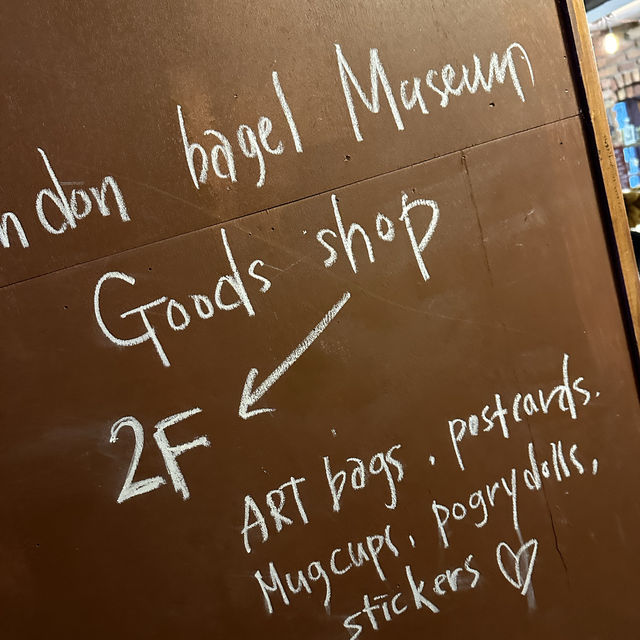 ndon bagel Museum
Goods shop
2F
ART bags, postcards.
Mugcups, pogrydolls,
stickers ♡